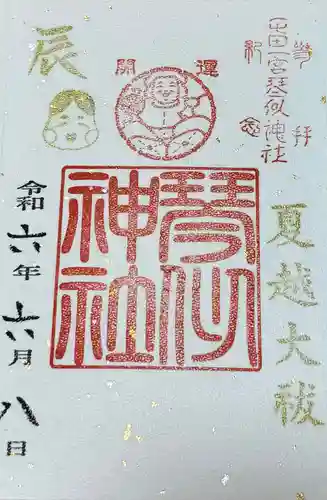 奉拝
王田一宮琴似神社
紀念
開運
辰
夏越大祓
琴似神社
令和六年六月八日